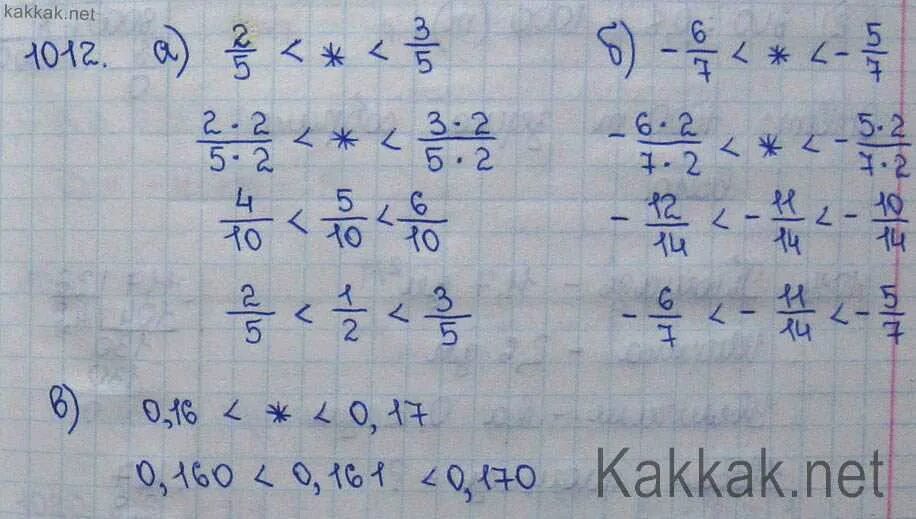 kakkak.net
1012. а) 2/5 < * < 3/5
(2·2)/(5·2) < * < (3·2)/(5·2)
4/10 < 5/10 < 6/10
2/5 < 1/2 < 3/5
б) -6/7 < * < -5/7
-(6·2)/(7·2) < * < -(5·2)/(7·2)
-12/14 < -11/14 < -10/14
-6/7 < -11/14 < -5/7
в) 0,16 < * < 0,17
0,160 < 0,161 < 0,170
Kakkak.net